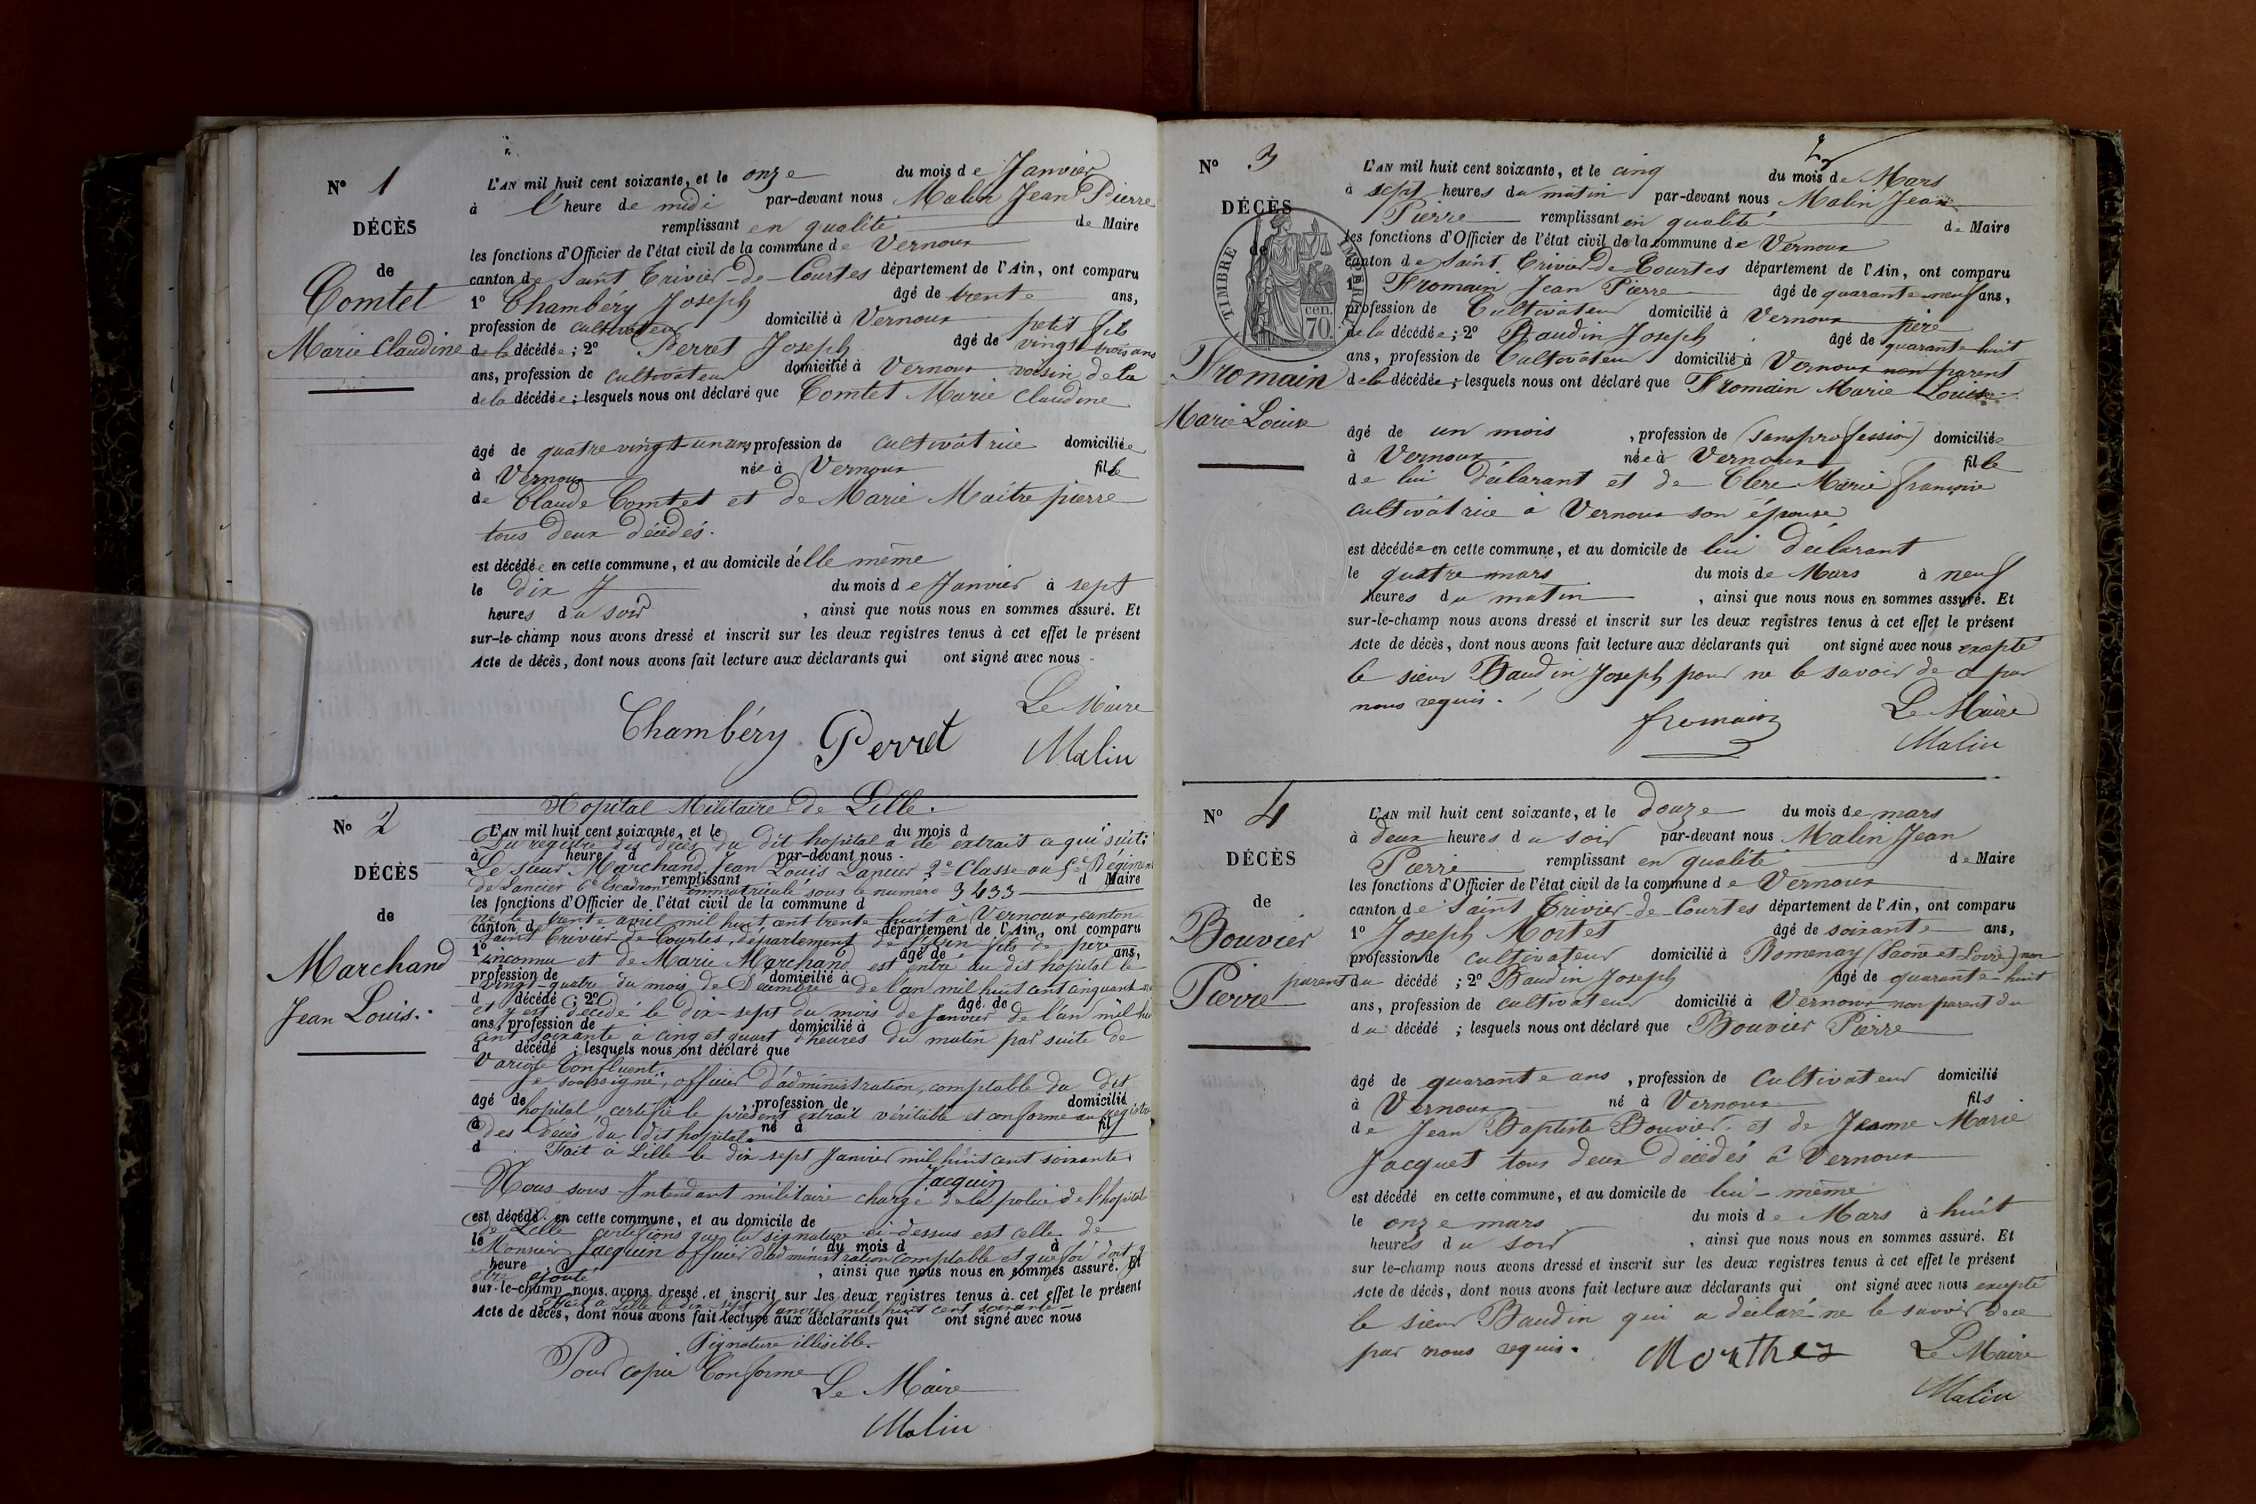 N° 1
DÉCÈS
de
Comtet
Marie Claudine
L'AN mil huit cent soixante, et le onze du mois de Janvier
à l'heure de midi par-devant nous Malin Jean Pierre
remplissant en qualité de Maire
les fonctions d'Officier de l'état civil de la commune de Vernoux
canton de Saint Trivier de Courtes département de l'Ain, ont comparu
1° Chambéry Joseph âgé de trente ans,
profession de cultivateur domicilié à Vernoux petit fils
de la décédée ; 2° Perret Joseph âgé de vingt trois ans
ans, profession de cultivateur domicilié à Vernoux voisin de la
de la décédée ; lesquels nous ont déclaré que Comtet Marie Claudine
âgé de quatre vingt un ans profession de cultivatrice domiciliée
à Vernoux née à Vernoux fille
de Claude Comtet et de Marie Maitrepierre
tous deux décédés.
est décédée en cette commune, et au domicile d'elle même
le dix du mois de Janvier à sept
heures du soir, ainsi que nous nous en sommes assuré. Et
sur-le-champ nous avons dressé et inscrit sur les deux registres tenus à cet effet le présent
Acte de décès, dont nous avons fait lecture aux déclarants qui ont signé avec nous
Chambéry Perret Le Maire
Malin
N° 2
DÉCÈS
de
Marchand
Jean Louis.
Hopital Militaire de Lille.
L'AN mil huit cent soixante, et le du mois d
Du registre des décès du dit hopital a été extrait ce qui suit:
à heure d par-devant nous
Le sieur Marchand Jean Louis Lancier 2e Classe au Régiment
remplissant d Maire
de Lancier 6e Escadron immatriculé sous le numéro 3433
les fonctions d'Officier de l'état civil de la commune d
né le trente avril mil huit cent trente huit à Vernoux, canton
canton d département de l'Ain, ont comparu
Saint Trivier de Courtes, département de l'Ain fils de père
1° âgé de ans,
inconnu et de Marie Marchand est entré au dit hopital le
profession de domicilié à
vingt-quatre du mois de Décembre de l'an mil huit cent cinquante
d décédé ; 2° âgé de
et y est décédé le dix-sept du mois de Janvier de l'an mil hui
ans, profession de domicilié à
cent soixante à cinq et quart heures du matin par suite de
d décédé ; lesquels nous ont déclaré que
Variole Confluente.
Je soussigné, officier d'administration, comptable du dit
âgé de , profession de domicilié
hopital, certifie le présent extrait véritable et conforme au registre
à né à fil
des décès du dit hopital.
d
Fait à Lille le dix sept Janvier mil huit cent soixante
Jacquin
Nous sous Intendant militaire chargé de la police de l'hopital
est décédé en cette commune, et au domicile de
de Lille certifions que la signature ci-dessus est celle de
le du mois d à
Monsieur Jacquin officier d'administration comptable et que foi doit y
heure d , ainsi que nous nous en sommes assuré. Et
être ajouté
sur-le-champ nous avons dressé et inscrit sur les deux registres tenus à cet effet le présent
Fait à Lille le dix sept Janvier mil huit cent soixante
Acte de décès, dont nous avons fait lecture aux déclarants qui ont signé avec nous
Signature illisible.
Pour copie Conforme
Le Maire
Malin
2
N° 3
DÉCÈS
de
TIMBRE IMPÉRIAL
cen.
70.
Fromain
Marie Louise
L'AN mil huit cent soixante, et le cinq du mois de Mars
à sept heures du matin par-devant nous Malin Jean
Pierre remplissant en qualité de Maire
les fonctions d'Officier de l'état civil de la commune de Vernoux
canton de Saint Trivier de Courtes département de l'Ain, ont comparu
1° Fromain Jean Pierre âgé de quarante-neuf ans,
profession de Cultivateur domicilié à Vernoux père
de la décédée ; 2° Baudin Joseph âgé de quarante-huit
ans, profession de Cultivateur domicilié à Vernoux non parent
de la décédée ; lesquels nous ont déclaré que Fromain Marie Louise
âgé de un mois , profession de (sans profession) domiciliée
à Vernoux née à Vernoux fille
de lui déclarant et de Clere Marie françoise
cultivatrice à Vernoux son épouse
est décédée en cette commune, et au domicile de lui déclarant
le quatre mars du mois de Mars à neuf
heures du matin , ainsi que nous nous en sommes assuré. Et
sur-le-champ nous avons dressé et inscrit sur les deux registres tenus à cet effet le présent
Acte de décès, dont nous avons fait lecture aux déclarants qui ont signé avec nous excepté
le sieur Baudin Joseph pour ne le savoir de ce par
nous requis.
fromain Le Maire
Malin
N° 4
DÉCÈS
de
Bouvier
Pierre
L'AN mil huit cent soixante, et le douze du mois de mars
à deux heures du soir par-devant nous Malin Jean
Pierre remplissant en qualité de Maire
les fonctions d'Officier de l'état civil de la commune de Vernoux
canton de Saint Trivier de Courtes département de l'Ain, ont comparu
1° Joseph Mortet âgé de soixante ans,
profession de cultivateur domicilié à Romenay (Saone et Loire) non
parent du décédé ; 2° Baudin Joseph âgé de quarante-huit
ans, profession de cultivateur domicilié à Vernoux non parent du
du décédé ; lesquels nous ont déclaré que Bouvier Pierre
âgé de quarante ans , profession de Cultivateur domicilié
à Vernoux né à Vernoux fils
de Jean Baptiste Bouvier et de Jeanne Marie
Jacquet tous deux décédés à Vernoux
est décédé en cette commune, et au domicile de lui-même
le onze mars du mois de Mars à huit
heures du soir , ainsi que nous nous en sommes assuré. Et
sur le-champ nous avons dressé et inscrit sur les deux registres tenus à cet effet le présent
Acte de décès, dont nous avons fait lecture aux déclarants qui ont signé avec nous excepté
le sieur Baudin qui a déclaré ne le savoir de ce
par nous requis. Morthez Le Maire
Malin